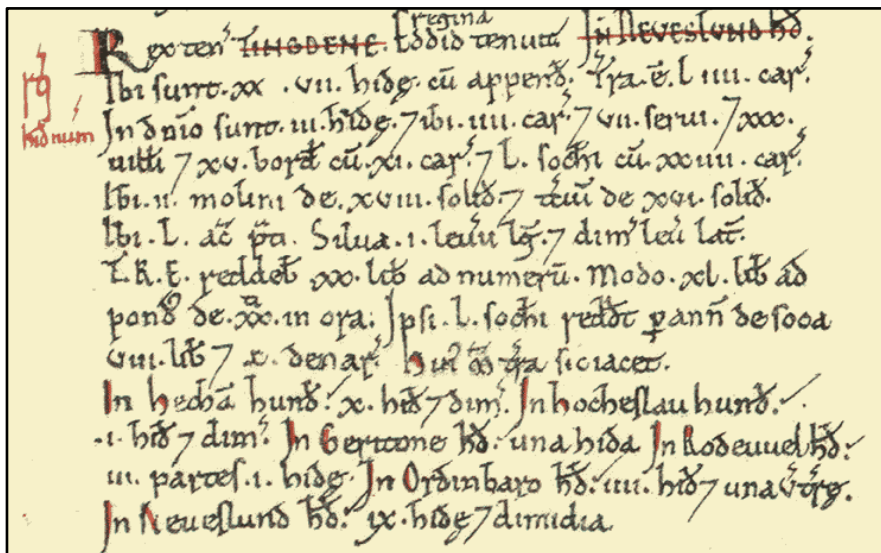 regina
Rex ten' TINGDENE. Eddid tenuit In NEVESLUND hđ.
Ibi sunt. xx .vii. hidę cū append. Tra. ē. L iiii. car'.
hid num
In dnio sunt. iii. hidę. ⁊ ibi. iiii. car'. ⁊ vii. serui. ⁊ xxx.
uilłi ⁊ xv. bord cū. xi. car'. ⁊ L. sochi cū. xxiiii. car'.
Ibi. ii. molini de. xviii. solid. ⁊ tciū de xvi. solid.
Ibi. L. ac̃ p̃ti. Silua. i. leuu lg̃. ⁊ dim' leu lat̃.
T.R.E. reddeb xxx. lib ad numerū. Modo. xl. lib ad
pond' de. xx. in ora. Ipsi. L. sochi reddt p ann̄ de soca
viii. lib ⁊ x. denar'. hui' m̃ tra sic iacet.
In hechā hund. x. hid ⁊ dim'. In hocheslau hund.
.i. hid ⁊ dim'. In Geritone hđ. una hida In Rodeuuel hđ.
iii. partes. i. hidę. In Ordinbaro hđ. iiii. hid ⁊ una v' trę.
In Neueslund hđ. ix. hidę ⁊ dimidia